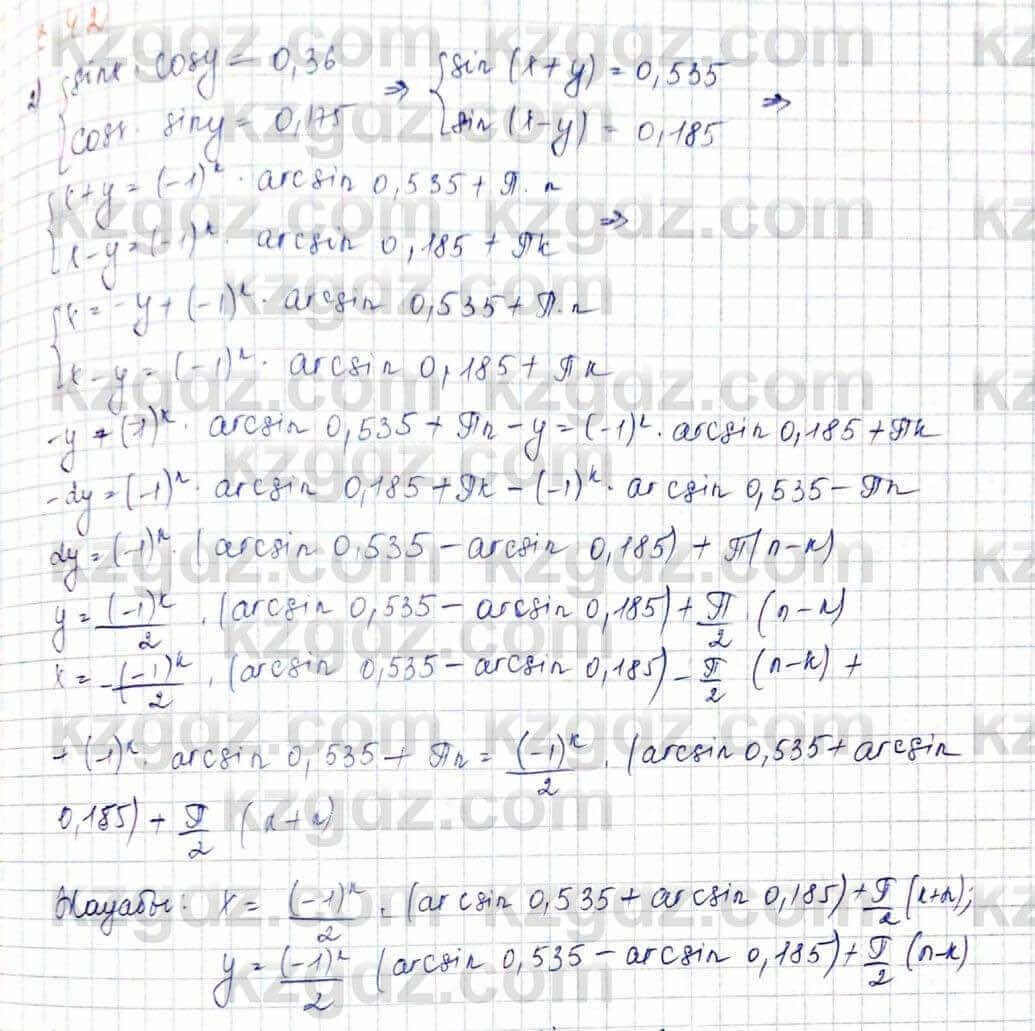 242
2) { sinx · cosy = 0,36 ⇒ { sin (x+y) = 0,535 ⇒
{ cosx · siny = 0,175 { sin (x-y) = 0,185
{ x+y = (-1)^n · arcsin 0,535 + П·n ⇒
{ x-y = (-1)^k · arcsin 0,185 + Пk
{ x = -y + (-1)^n · arcsin 0,535 + П·n
{ x-y = (-1)^k · arcsin 0,185 + Пk
-y + (-1)^k · arcsin 0,535 + Пn - y = (-1)^k · arcsin 0,185 + Пk
-2y = (-1)^k · arcsin 0,185 + Пk - (-1)^k · arcsin 0,535 - Пn
2y = (-1)^k · (arcsin 0,535 - arcsin 0,185) + П(n-k)
y = (-1)^k/2 · (arcsin 0,535 - arcsin 0,185) + П/2 · (n-k)
x = -(-1)^k/2 · (arcsin 0,535 - arcsin 0,185) - П/2 (n-k) +
+ (-1)^k · arcsin 0,535 + Пn = (-1)^k/2 · (arcsin 0,535 + arcsin
0,185) + П/2 (k+n)
Жауабы: x = (-1)^k/2 · (arcsin 0,535 + arcsin 0,185) + П/2 (k+n);
y = (-1)^k/2 (arcsin 0,535 - arcsin 0,185) + П/2 (n-k)
kzgdz.com